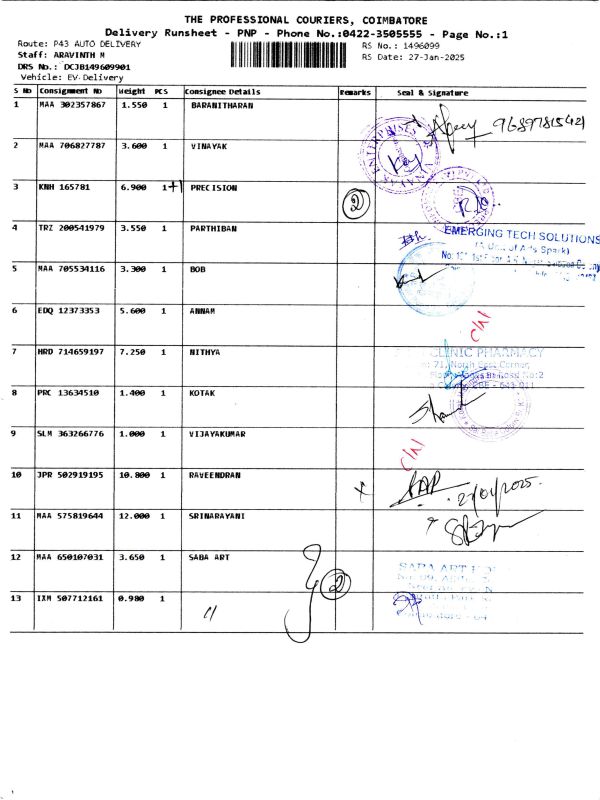 THE PROFESSIONAL COURIERS, COIMBATORE
Delivery Runsheet - PNP - Phone No.:0422-3505555 - Page No.:1
Route: P43 AUTO DELIVERY RS No.: 1496099
Staff: ARAVINTH M RS Date: 27-Jan-2025
DRS No.: DCJB149609901
Vehicle: EV Delivery
S No Consignment No Weight PCS Consignee Details Remarks Seal & Signature
1 MAA 302357867 1.550 1 BARANITHARAN
2 MAA 706827787 3.600 1 VINAYAK
3 KNH 165781 6.900 1+1 PRECISION 2
4 TRZ 200541979 3.550 1 PARTHIBAN
EMERGING TECH SOLUTIONS
(A Unit of Arts Spark)
5 MAA 705534116 3.300 1 BOB
6 EDQ 12373353 5.600 1 ANNAM
7 HRD 714659197 7.250 1 NITHYA
CLINIC PHARMACY
71, North East Corner,
8 PRC 13634510 1.400 1 KOTAK
9 SLM 363266776 1.000 1 VIJAYAKUMAR
10 JPR 502919195 10.800 1 RAVEENDRAN 27/01/2025.
11 MAA 575819644 12.000 1 SRINARAYANI
12 MAA 650107031 3.650 1 SABA ART 2
SABA ART
13 IXM 507712161 0.980 1 "